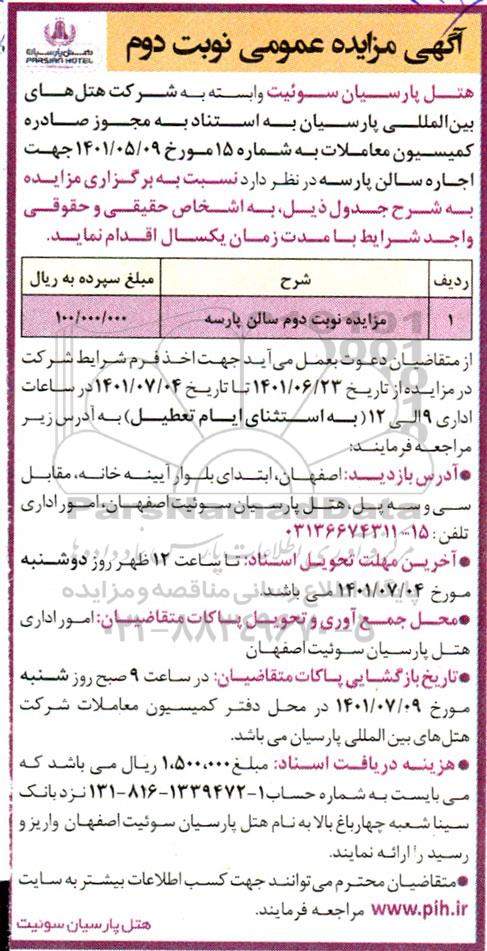 آگهی مزایده عمومی نوبت دوم
هتل پارسیان
PARSIAN HOTEL
هتل پارسیان سوئیت وابسته به شرکت هتل‌های
بین‌المللی پارسیان به استناد به مجوز صادره
کمیسیون معاملات به شماره ۱۵ مورخ ۱۴۰۱/۰۵/۰۹ جهت
اجاره سالن پارسه در نظر دارد نسبت به برگزاری مزایده
به شرح جدول ذیل، به اشخاص حقیقی و حقوقی
واجد شرایط با مدت زمان یکسال اقدام نماید.
ردیف شرح مبلغ سپرده به ریال
۱ مزایده نوبت دوم سالن پارسه ۱۰۰/۰۰۰/۰۰۰
از متقاضیان دعوت بعمل می‌آید جهت اخذ فرم شرایط شرکت
در مزایده از تاریخ ۱۴۰۱/۰۶/۲۳ تا تاریخ ۱۴۰۱/۰۷/۰۴ در ساعات
اداری ۹ الی ۱۲ (به استثنای ایام تعطیل) به آدرس زیر
مراجعه فرمایند:
●آدرس بازدید: اصفهان، ابتدای بلوار آیینه خانه، مقابل
سی و سه پل، هتل پارسیان سوئیت اصفهان، امور اداری
تلفن: ۱۵-۰۳۱۳۶۶۷۴۳۱۱
●آخرین مهلت تحویل اسناد: تا ساعت ۱۲ ظهر روز دوشنبه
مورخ ۱۴۰۱/۰۷/۰۴ می باشد.
●محل جمع آوری و تحویل پاکات متقاضیان: امور اداری
هتل پارسیان سوئیت اصفهان
●تاریخ بازگشایی پاکات متقاضیان: در ساعت ۹ صبح روز شنبه
مورخ ۱۴۰۱/۰۷/۰۹ در محل دفتر کمیسیون معاملات شرکت
هتل‌های بین المللی پارسیان می باشد.
●هزینه دریافت اسناد: مبلغ ۱،۵۰۰،۰۰۰ ریال می باشد که
می بایست به شماره حساب ۱-۱۳۳۹۴۷۲-۸۱۶-۱۳۱ نزد بانک
سینا شعبه چهارباغ بالا به نام هتل پارسیان سوئیت اصفهان واریز و
رسید را ارائه نمایند.
●متقاضیان محترم می‌توانند جهت کسب اطلاعات بیشتر به سایت
www.pih.ir مراجعه فرمایند.
هتل پارسیان سوئیت
ParsNamadData
۰۲۱-۸۸۳۴۹۶۷۰-۵